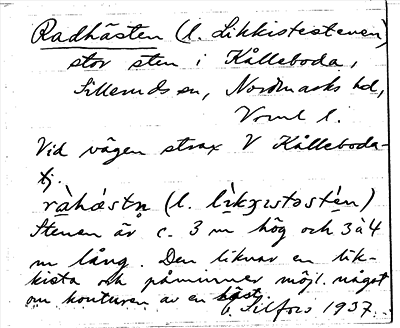 Radhästen (l. Likkistestenen)
stor sten i Kålleboda,
Silleruds sn, Nordmarks hd,
Vrml l.
Vid vägen strax V Kålleboda-
tj.
ràhǽstn (l. lìkʒɩstəstén)
Stenen är c. 3 m hög och 3 à 4
m lång. Den liknar en lik-
kista och påminner möjl. något
om konturen av en häst.
Lilfors 1937.